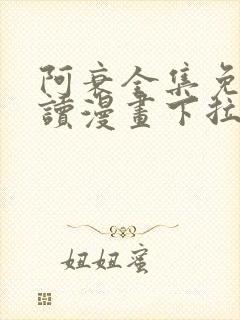 阿衰全集免
讀漫畫下拉
妞妞蜜